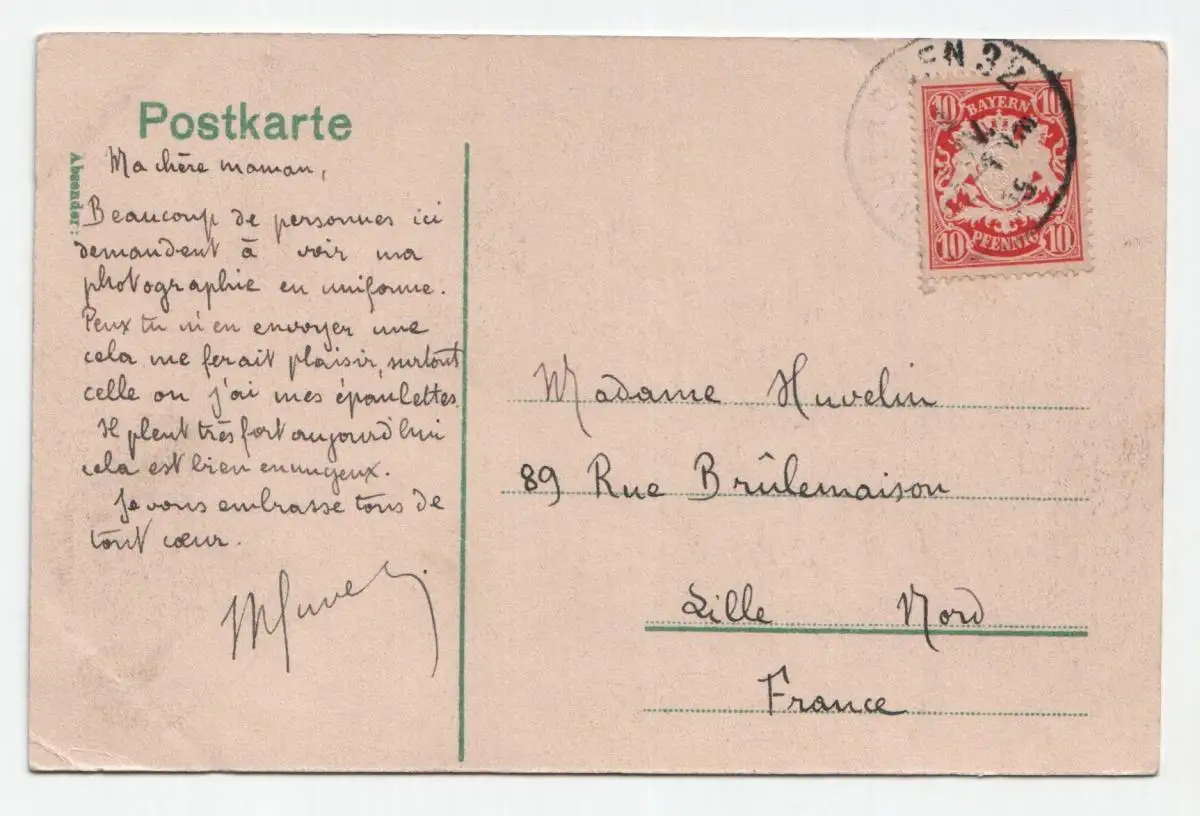 Postkarte
Absender:
Ma chère maman,
Beaucoup de personnes ici
demandent à voir ma
photographie en uniforme.
Peux tu m'en envoyer une
cela me ferait plaisir, surtout
celle ou j'ai mes épaulettes.
Il pleut très fort aujourd'hui
cela est bien ennuyeux.
Je vous embrasse tous de
tout cœur.
EN 32
10 BAYERN 10
10 PFENNIG 10
Madame Huvelin
89 Rue Brûlemaison
Lille Nord
France